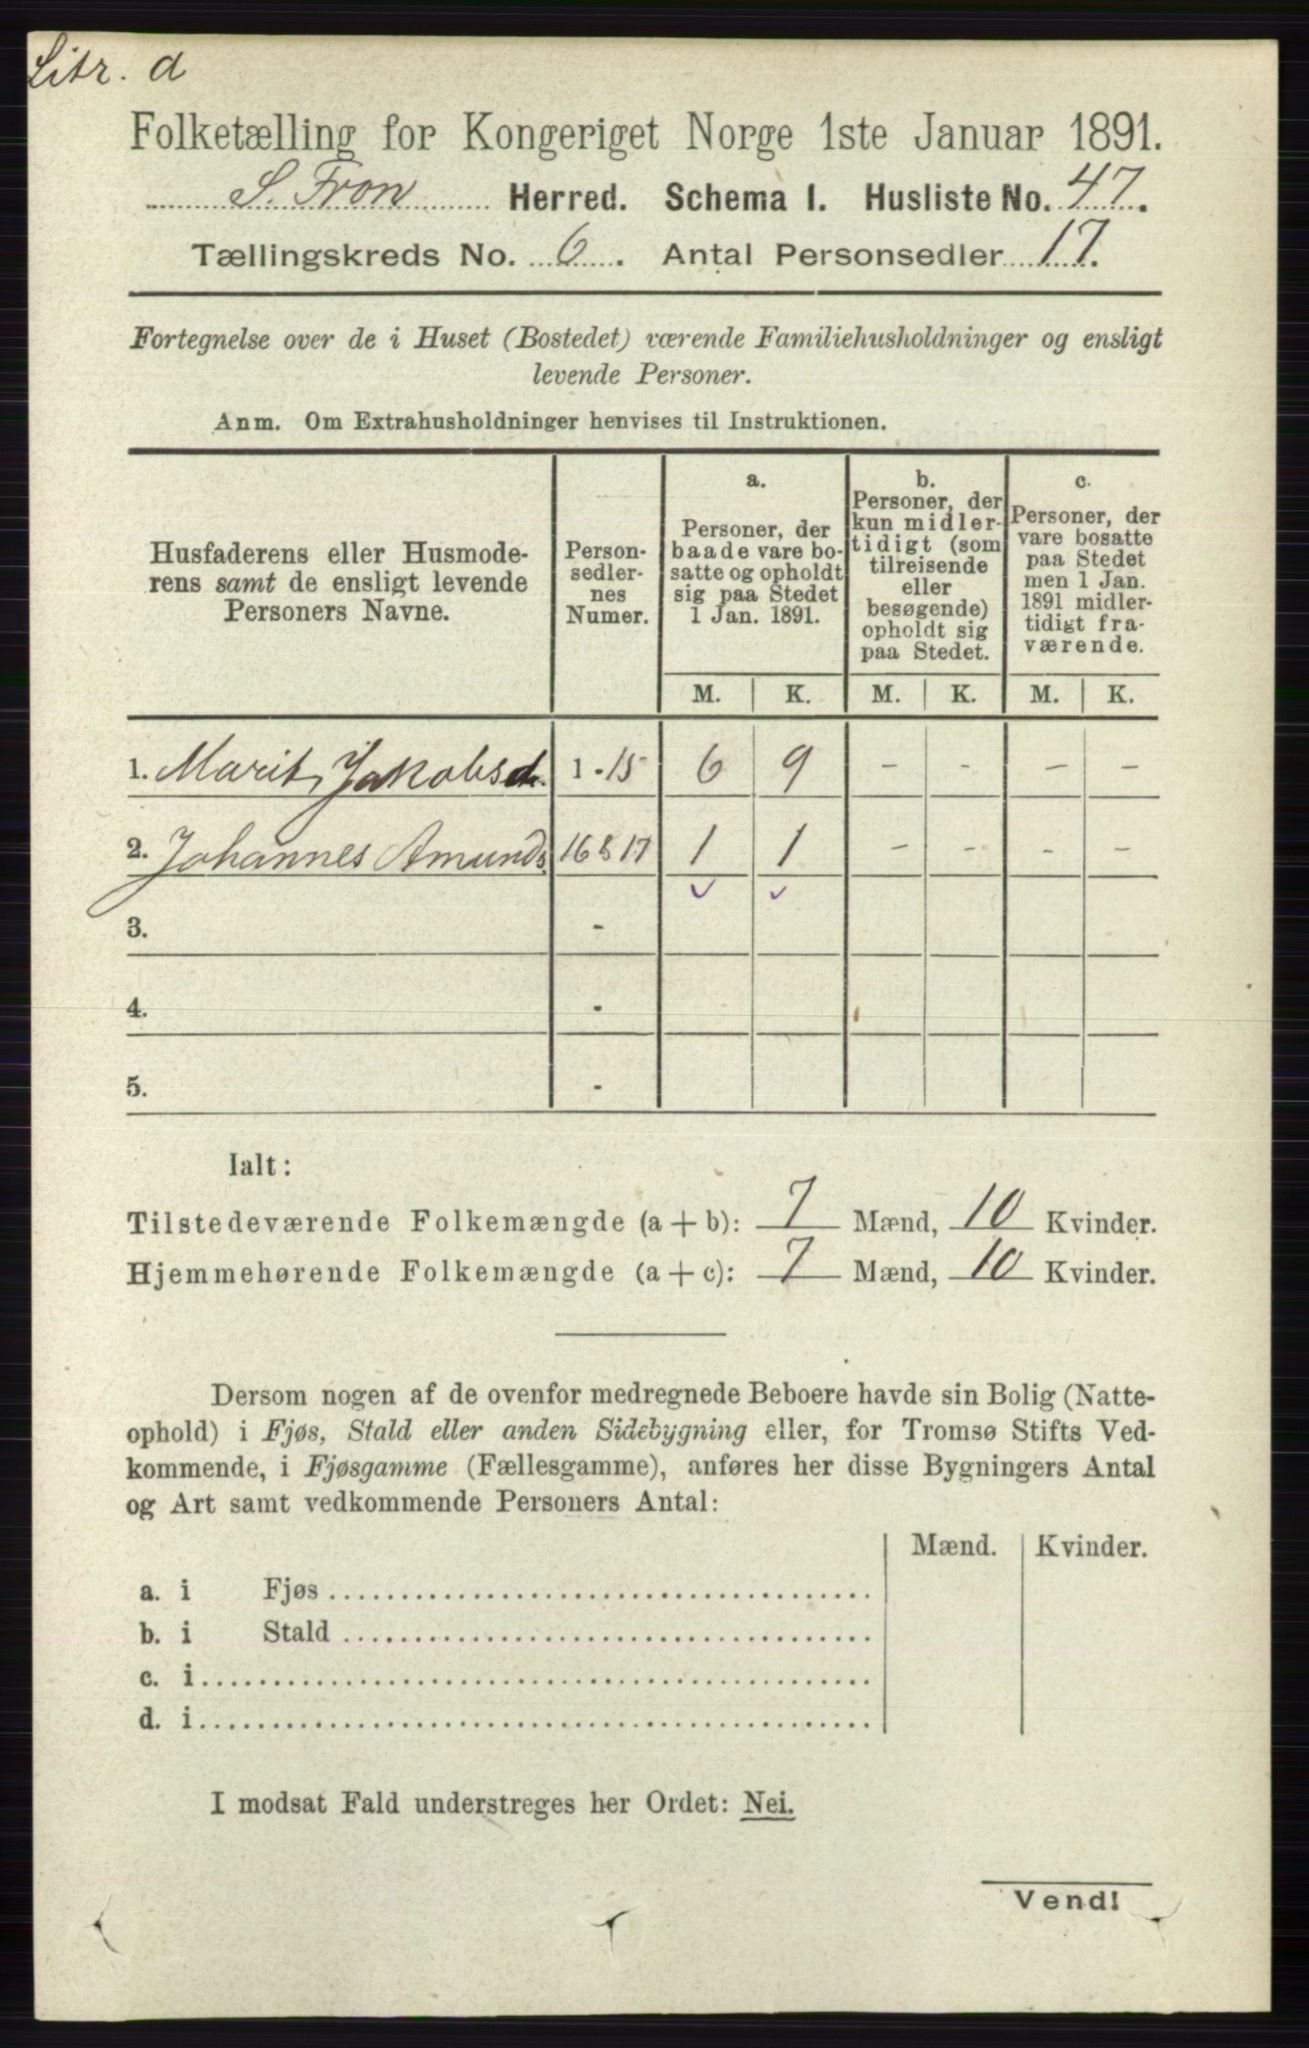 Litr. d
Folketælling for Kongeriget Norge 1ste Januar 1891.
S. Fron Herred. Schema I. Husliste No. 47.
Tællingskreds No. 6. Antal Personsedler 17.
Fortegnelse over de i Huset (Bostedet) værende Familiehusholdninger og ensligt
levende Personer.
Anm. Om Extrahusholdninger henvises til Instruktionen.
Husfaderens eller Husmode-
rens samt de ensligt levende
Personers Navne.
Person-
sedler-
nes
Numer.
a.
Personer, der
baade vare bo-
satte og opholdt
sig paa Stedet
1 Jan. 1891.
b.
Personer, der
kun midler-
tidigt (som
tilreisende
eller
besøgende)
opholdt sig
paa Stedet.
c.
Personer, der
vare bosatte
paa Stedet
men 1 Jan.
1891 midler-
tidigt fra-
værende.
M. K. M. K. M. K.
1. Marit Jakobsd. 1 - 15 6 9 - - - -
2. Johannes Amunds. 16 & 17 1 1 - - - -
3. -
4. -
5. -
Ialt:
Tilstedeværende Folkemængde (a + b): 7 Mænd, 10 Kvinder.
Hjemmehørende Folkemængde (a + c): 7 Mænd, 10 Kvinder.
Dersom nogen af de ovenfor medregnede Beboere havde sin Bolig (Natte-
ophold) i Fjøs, Stald eller anden Sidebygning eller, for Tromsø Stifts Ved-
kommende, i Fjøsgamme (Fællesgamme), anføres her disse Bygningers Antal
og Art samt vedkommende Personers Antal:
Mænd. Kvinder.
a. i Fjøs
b. i Stald
c. i
d. i
I modsat Fald understreges her Ordet: Nei.
Vend!